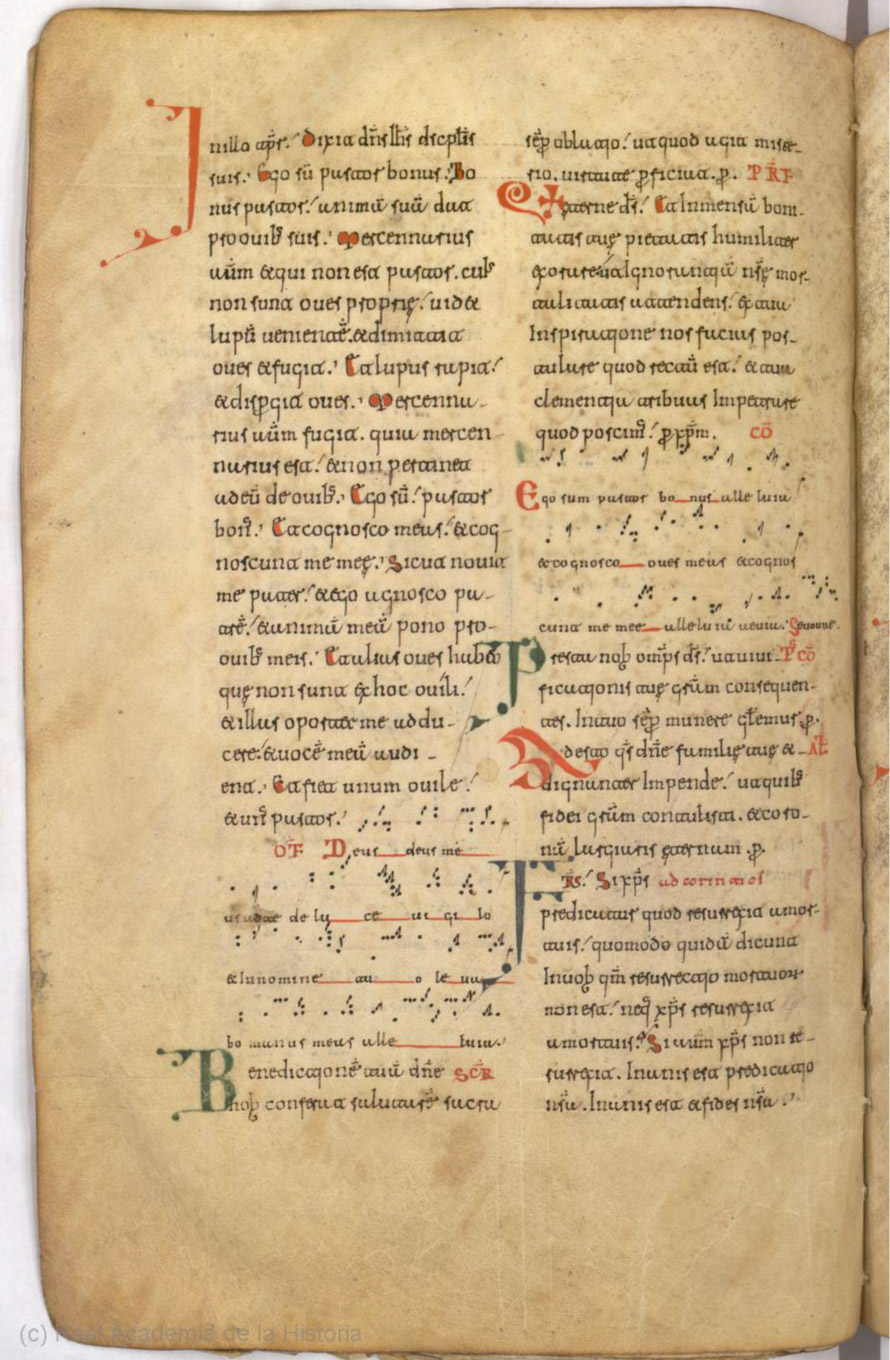 In illo tp̄r. Dixit dn̄s ih̄s discipl̄is
suis. Ego sū pastor bonus. Bo
nus pastor. animā suā dat
pro ouib; suis. Mercennarius
aūm & qui non est pastor. cui;
non sunt oues proprię. uid&
lupū uenientē. & dimittit
oues & fugit. Et lupus rapit.
& disp̄git oues. Mercenna-
rius aūm fugit. quia mercen-
narius est. & non pertinet
ad eū de ouib;. Ego sū pastor
bon;. Et cognosco meas. & cog-
noscunt me meę. Sicut nouit
me pater. & ego agnosco pa-
trē. & animā meā pono pro-
ouib; meis. Et alias oues habeo
quę non sunt ex hoc ouili.
& illas oportet me addu-
cere. & uocē meā audi-
ent. Et fiet unum ouile.
& un; pastor.
OF̄ Deus deus me
us ad te de lu ce ui gi lo
& in nomine tu o le ua
bo manus meas alle luia.
Benedictionē tuā dn̄e SCR̄
nob conferat salutarē sacra
sēp oblatio. ut quod agit miste-
rio. uirtute perficiat. p. PRF̄
Eterne ds̄. Et inmensā boni-
tatis tuę pietatis humiliter
exorare ut ignorantiā nr̄ę mor-
talitatis attendens. ex tua
Inspiratione nos facias pos-
tulare quod rectū est. & tua
clementia tribuas Impetrare
quod poscim;. p xp̄m. CŌ
Ego sum pastor bo nus alle luia
& cognosco oues meas & cognos
cunt me mee alleluia aeuia. Seuouae.
Presta nob omp̄s ds̄. ut uiui- P CŌ
ficationis tuę gr̄am consequen-
tes. In tuo sēp munere gl̄emur. p.
Adesto qs̄ dn̄e familię tuę & AL̄
dignanter Impende. ut quib;
fidei gr̄am contulisti. & coro-
nā largiaris ęternum. p.
FR̄S. Si xp̄s ad corintios
predicatur quod resurrexit a mor-
tuis. quomodo quidā dicunt
In uob qm̄ resurrectio mortuor
non est. neq; xp̄s resurrexit
a mortuis. Si aūm xp̄s non re-
surrexit. Inanis est predicatio
nr̄a. Inanis est & fides nr̄a.